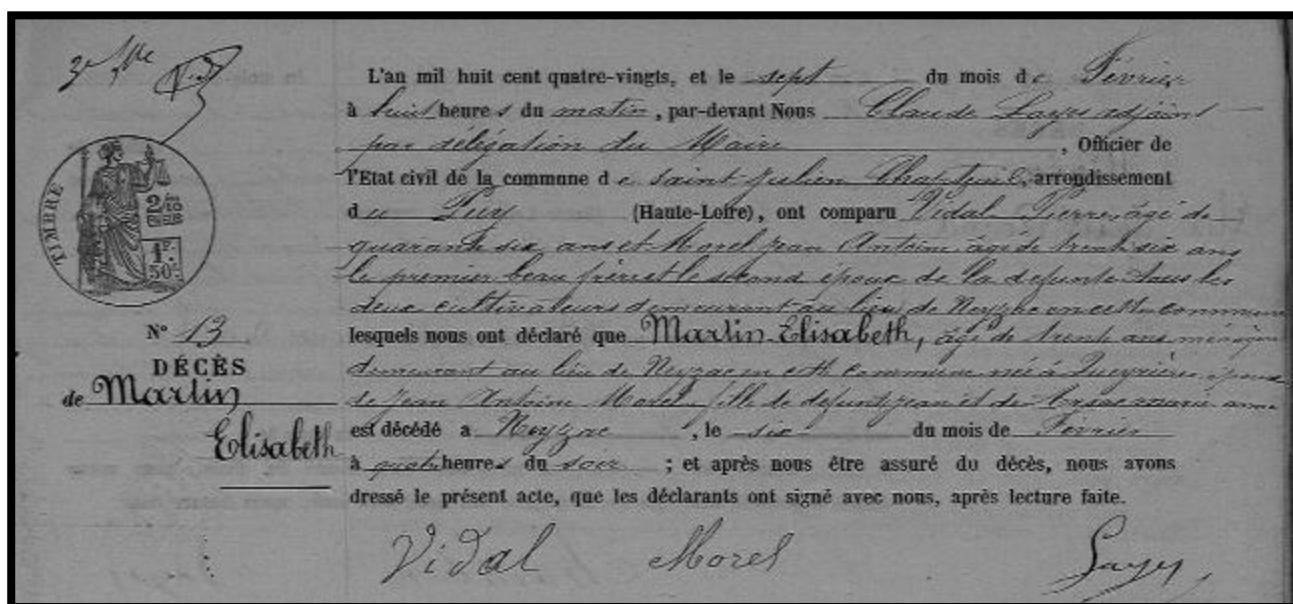 3e Mle
TIMBRE
2/10 EN SUS
1F. 50c
N° 13
DÉCÈS
de Martin
Elisabeth
L'an mil huit cent quatre-vingts, et le sept du mois de Février
à huit heures du matin, par-devant Nous Claude Layes adjoint
par délégation du Maire, Officier de
l'Etat civil de la commune de Saint Julien Chapteuil, arrondissement
du Puy (Haute-Loire), ont comparu Vidal Pierre, âgé de
quarante six ans et Morel Jean Antoine âgé de trente six ans
le premier beau frère et le second époux de la defunte tous les
deux cultivateurs demeurant au lieu de Neyzac en cette commune
lesquels nous ont déclaré que Martin Elisabeth, âgé de trente ans ménagère
demeurant au lieu de Neyzac en cette commune née à Queyrières épouse
de Jean Antoine Morel fille de defunt Jean et de marie anne
est décédé a Neyzac, le six du mois de Fevrier
à quatre heures du soir ; et après nous être assuré du décès, nous avons
dressé le présent acte, que les déclarants ont signé avec nous, après lecture faite.
Vidal Morel Layes